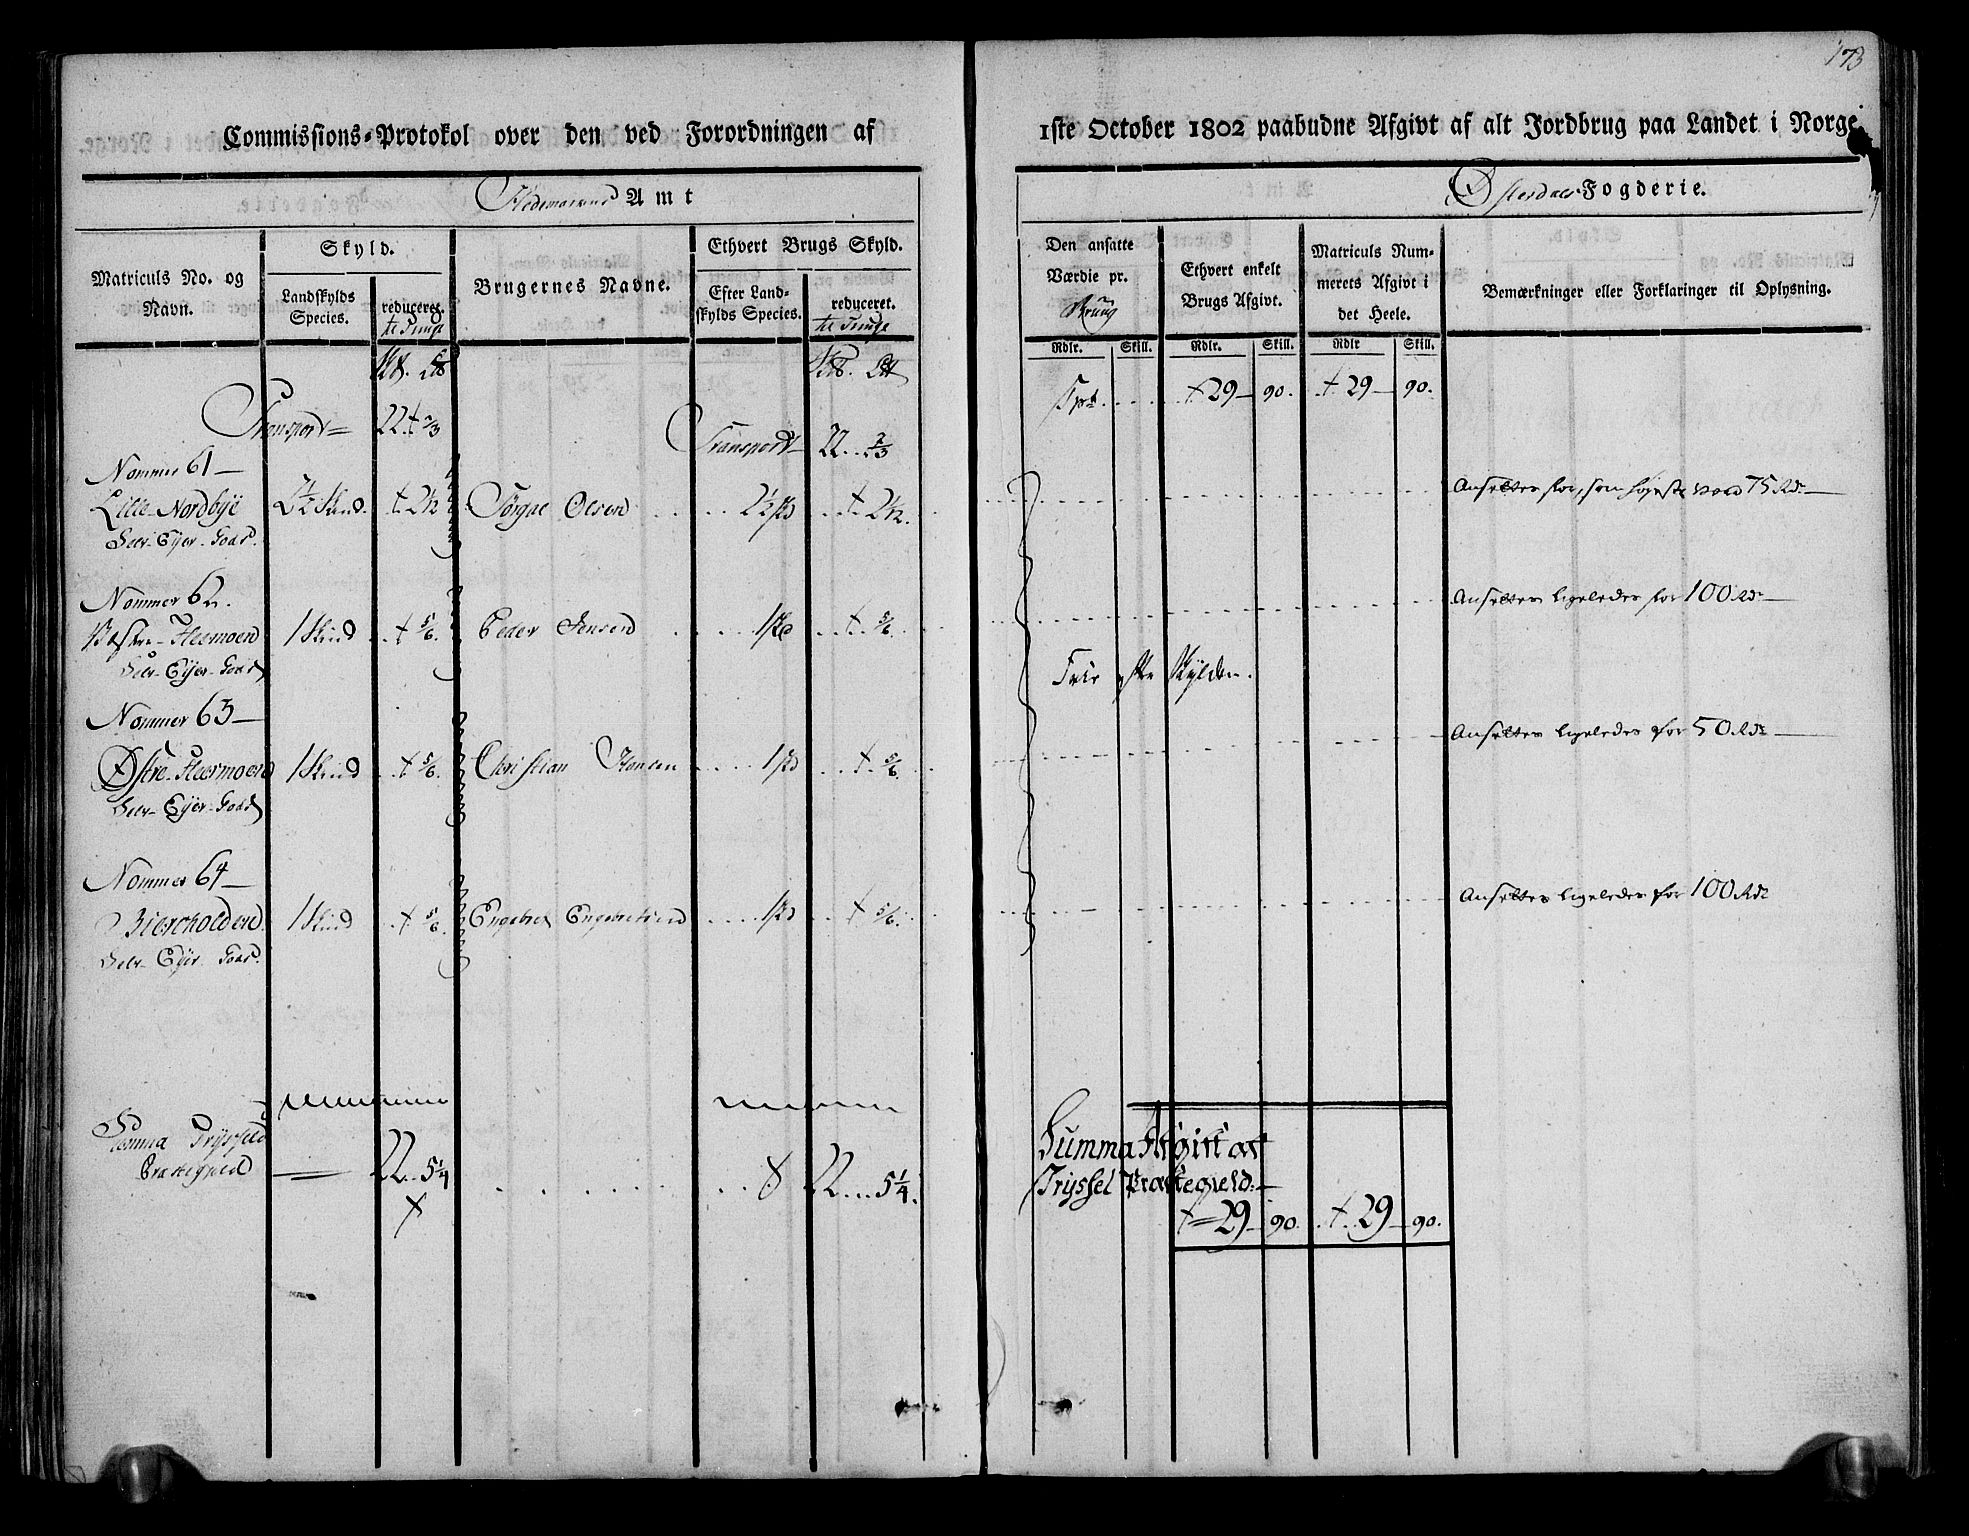 173
Commissions-Protokol over den ved Forordningen af
1ste October 1802 paabudne Afgivt af alt Jordbrug paa Landet i Norge.
Hedemarkens Amt
Østerdals Fogderie.
Matriculs No. og Navn.
Skyld.
Landskylds Species.
reduceret.
til Tunge
Brugernes Navne.
Ethvert Brugs Skyld.
Efter Landskylds Species.
reduceret.
til Tunge
Den ansatte Værdie pr.
Ethvert enkelt Brugs Afgivt.
Matriculs Nummerets Afgivt i det Heele.
Bemærkninger eller Forklaringer til Oplysning.
Rdlr. Skill. Rdlr. Skill. Rdlr Skill.
Transport 22. 2/3 Transport 22 .. 2/3 Tpt. 29 90. 29 90.
Nommer 61
Lille Nordbye 2 1/2 Skind. 2 1/12 Olsen 2 1/2 2 1/12. Ansettes for, som høyeste værd 75 Rdr
Selv-Ejer-Gods.
Nommer 62.
Hermoen 1 Skind 5/6. Peder Jensen 1 5/6. Ansettes ligeledes for 100 Rdr
Selv-Ejer-Gods
Frie efter Skylden.
Nommer 63
Østre Hermoen 1 Skind 5/6. Christian Hansen 1 5/6. Ansettes ligeledes for 50 Rdr
Selv-Ejer-Gods
Nommer 64
Biercholden 1 Skind 5/6. Engebret Engebretsen 1 5/6. Ansettes ligeledes for 100 Rdr
Selv-Ejer-Gods.
Summa Tryssel
Præstegield 22 .. 5 1/4 22 ... 5 1/4.
Summa Afgivt af
Tryssel Præstegield:
29 90. 29 90.